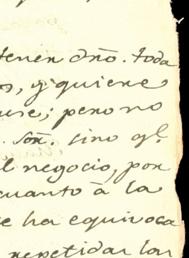 tener dño. toda
os, y quiere
use; pero no
Sor. sino ql.
l negocio, por
cuanto à la
se ha equivoca
repetidas las